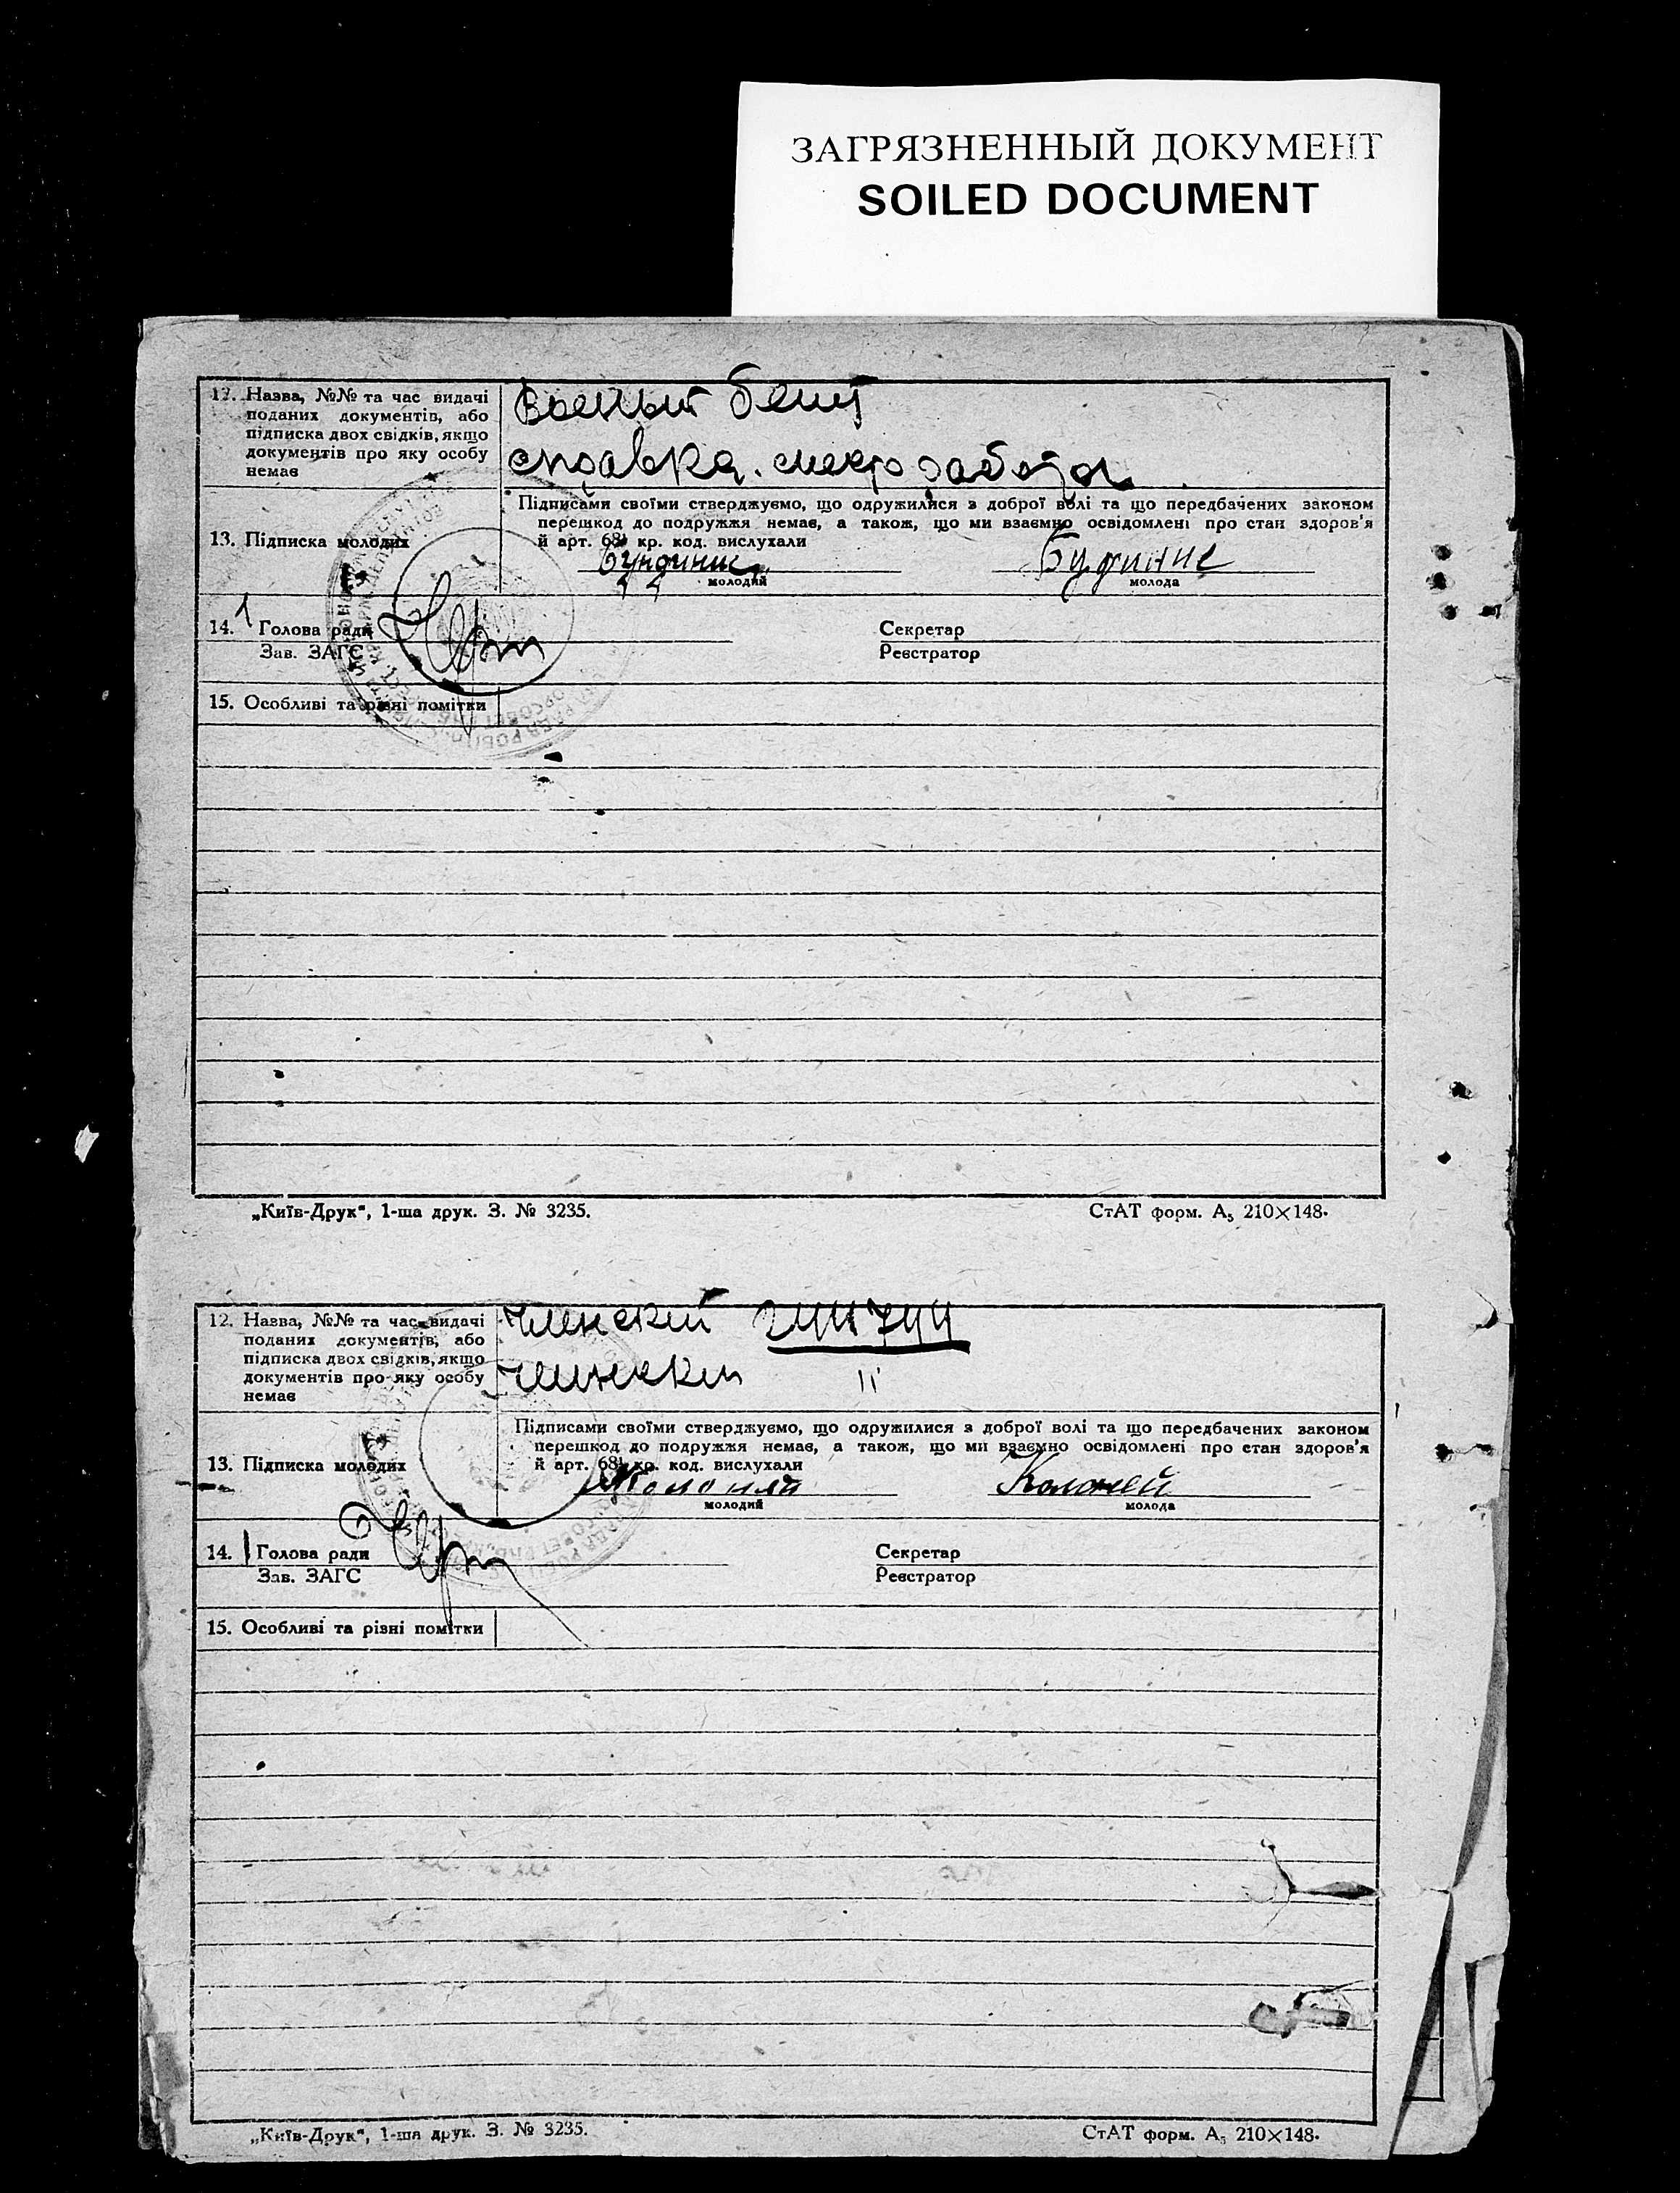 ЗАГРЯЗНЕННЫЙ ДОКУМЕНТ
SOILED DOCUMENT
12. Назва, №№ та час видачі
поданих документів, або
підписка двох свідків, якщо
документів про яку особу
немає
военый белет
справка. место работы
Підписами своїми стверджуємо, що одружилися з доброї волі та що передбачених законом
перешкод до подружжя немає, а також, що ми взаємно освідомлені про стан здоров'я
й арт. 68¹ кр. код. вислухали
13. Підписка молодих
молодий
молода
14. Голова ради
Зав. ЗАГС
Секретар
Реєстратор
15. Особливі та різні помітки
„Київ-Друк", 1-ша друк. З. № 3235.
СтАТ форм. А₅ 210×148.
12. Назва, №№ та час видачі
поданих документів, або
підписка двох свідків, якщо
документів про яку особу
немає
Підписами своїми стверджуємо, що одружилися з доброї волі та що передбачених законом
перешкод до подружжя немає, а також, що ми взаємно освідомлені про стан здоров'я
й арт. 68¹ кр. код. вислухали
13. Підписка молодих
молодий
молода
14. Голова ради
Зав. ЗАГС
Секретар
Реєстратор
15. Особливі та різні помітки
„Київ-Друк", 1-ша друк. З. № 3235.
СтАТ форм. А₅ 210×148.